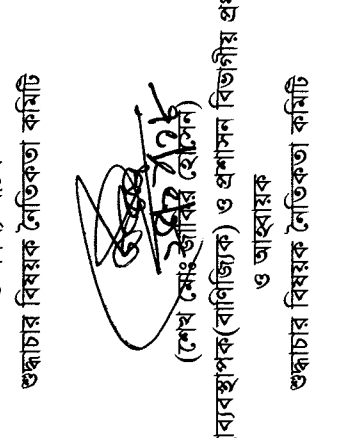 শুদ্ধাচার বিষয়ক নৈতিকতা কমিটি
(শেখ মোঃ জাকির হোসেন)
ব্যবস্থাপক(বাণিজ্যিক) ও প্রশাসন বিভাগীয়
ও আহ্বায়ক
শুদ্ধাচার বিষয়ক নৈতিকতা কমিটি